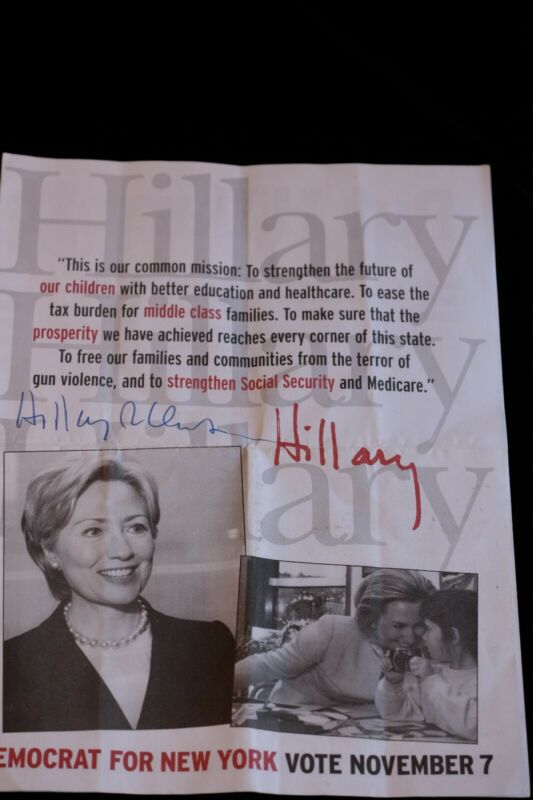 Hillary
"This is our common mission: To strengthen the future of
our children with better education and healthcare. To ease the
tax burden for middle class families. To make sure that the
prosperity we have achieved reaches every corner of this state.
To free our families and communities from the terror of
gun violence, and to strengthen Social Security and Medicare."
Hillary
Hillary R Clinton
Hillary
Hillary
EMOCRAT FOR NEW YORK VOTE NOVEMBER 7